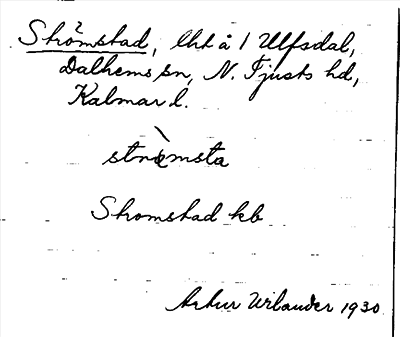 Strömstad, lht å 1 Ulfsdal,
Dalhems sn, N. Tjusts hd,
Kalmar l.
strœ̀msta
Stromstad kb
Artur Wilander 1930